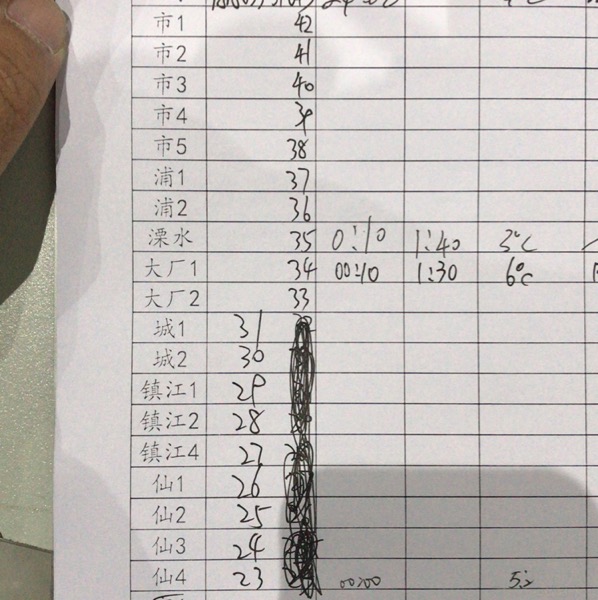 市1 42
市2 41
市3 40
市4 39
市5 38
浦1 37
浦2 36
溧水 35 0:10 1:40 3°C
大厂1 34 00:10 1:30 6°C
大厂2 33
城1 31
城2 30
镇江1 29
镇江2 28
镇江4 27
仙1 26
仙2 25
仙3 24
仙4 23 00:00